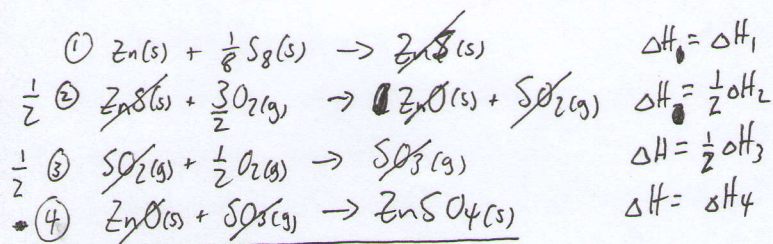 ① Zn(s) + 1/8 S8(s) → ZnS(s) ΔH₁ = ΔH₁
1/2 ② ZnS(s) + 3/2 O2(g) → ZnO(s) + SO2(g) ΔH = 1/2 ΔH2
1/2 ③ SO2(g) + 1/2 O2(g) → SO3(g) ΔH = 1/2 ΔH3
④ ZnO(s) + SO3(g) → ZnSO4(s) ΔH = ΔH4